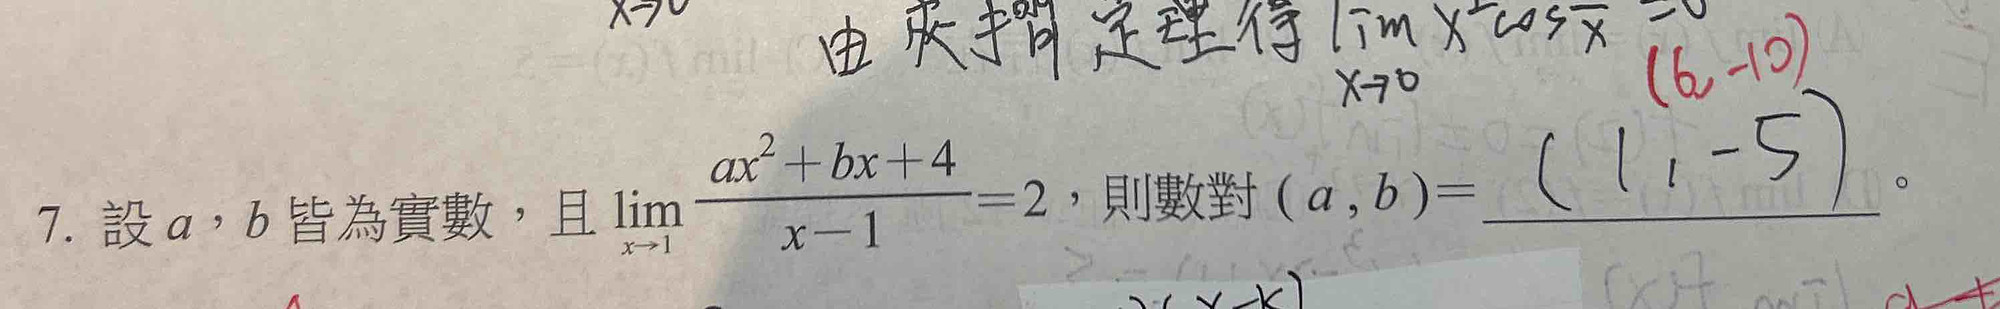 x→0
由 夾擠 定理得 lim x² cos 1/x = 0
x→0
(6, -10)
7. 設 a，b 皆為實數，且 lim_{x→1} (ax²+bx+4)/(x−1) = 2，則數對 ( a , b )= (1, -5) 。
(x-k)